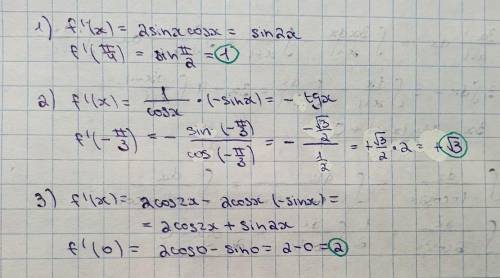 1) f'(x) = 2sinxcosx = sin2x
f'(π/4) = sin π/2 = 1
2) f'(x) = 1/cosx · (-sinx) = - tgx
f'(-π/3) = - sin(-π/3)/cos(-π/3) = - (-√3/2)/(1/2) = +√3/2 · 2 = +√3
3) f'(x) = 2cos2x - 2cosx (-sinx) =
= 2cos2x + sin2x
f'(0) = 2cos0 - sin0 = 2-0 = 2